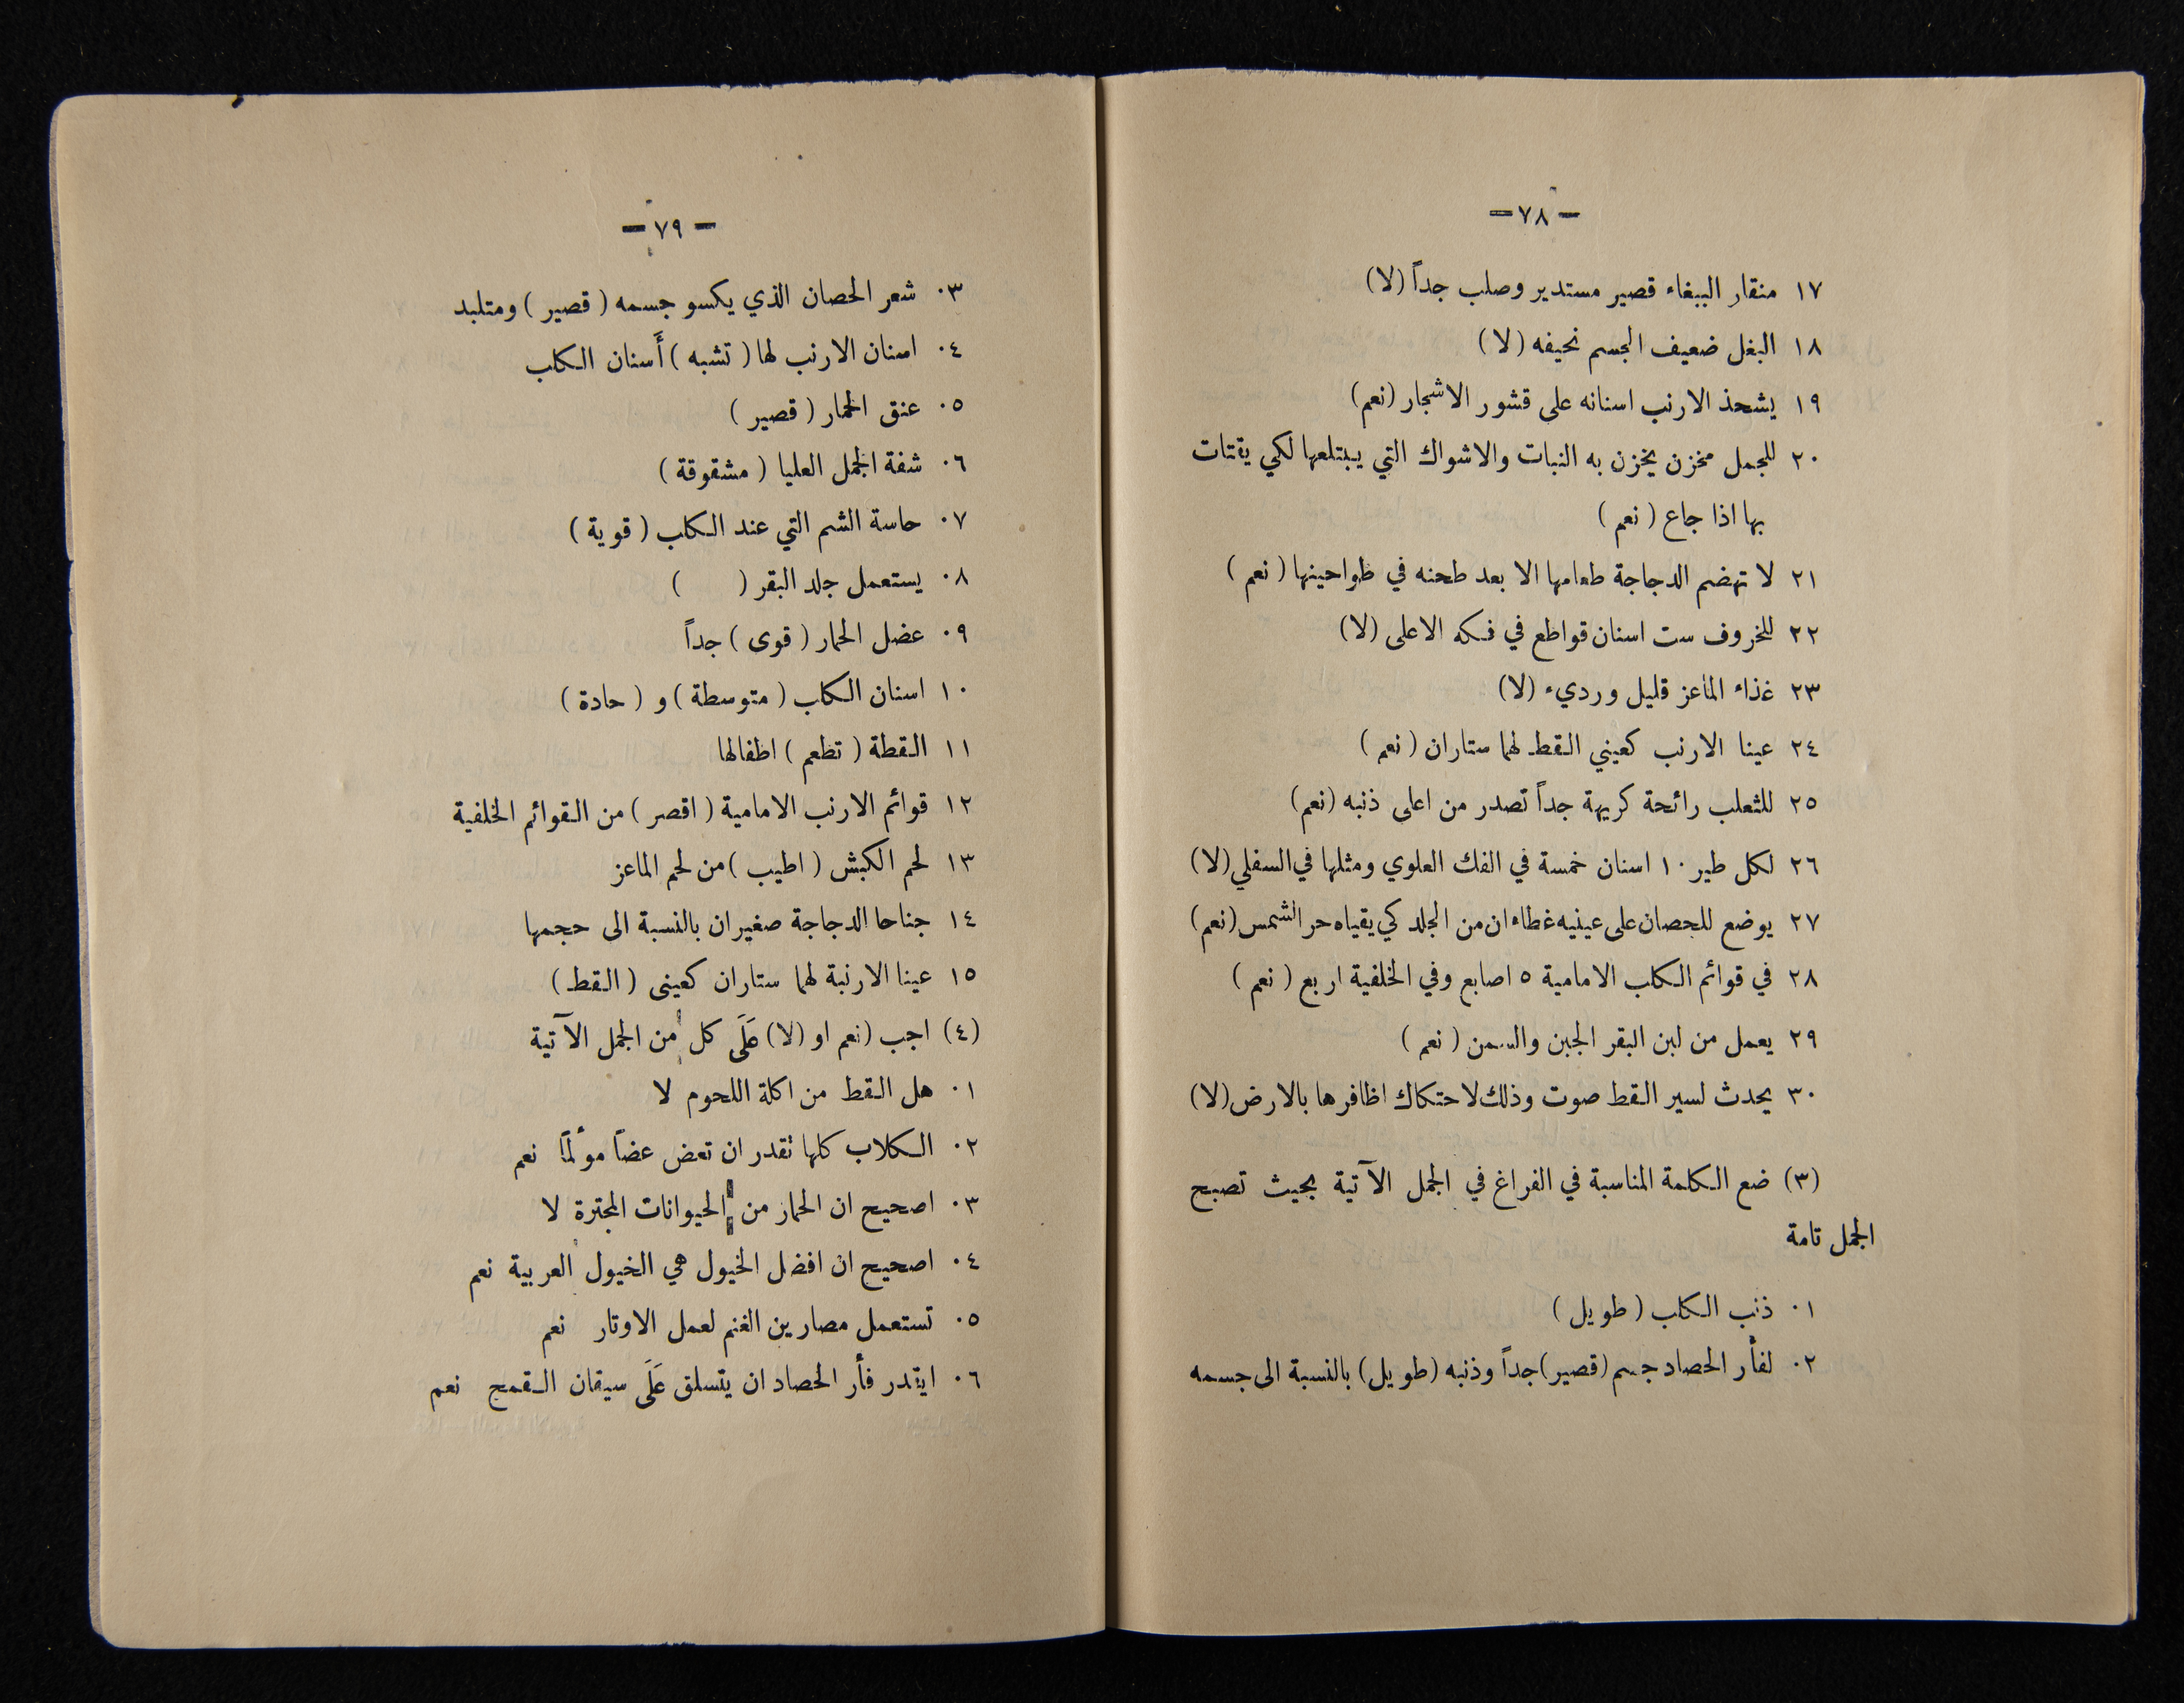 — ٧٨ —
١٧ منقار الببغاء قصير مستدير وصلب جداً (لا)
١٨ البغل ضعيف الجسم نحيفه (لا)
١٩ يشحذ الارنب اسنانه على قشور الاشجار (نعم)
٢٠ للجمل مخزن يخزن به النبات والاشواك التي يبتلعها لكي يقتات
بها اذا جاع (نعم)
٢١ لا تهضم الدجاجة طعامها الا بعد طحنه في طواحينها (نعم)
٢٢ للخروف ست اسنان قواطع في فكه الاعلى (لا)
٢٣ غذاء الماعز قليل ورديء (لا)
٢٤ عينا الارنب كعيني القط لهما ستاران (نعم)
٢٥ للثعلب رائحة كريهة جداً تصدر من اعلى ذنبه (نعم)
٢٦ لكل طير ١٠ اسنان خمسة في الفك العلوي ومثلها في السفلي (لا)
٢٧ يوضع للحصان على عينيه غطاءان من الجلد كي يقياه حر الشمس (نعم)
٢٨ في قوائم الكلب الامامية ٥ اصابع وفي الخلفية اربع (نعم)
٢٩ يعمل من لبن البقر الجبن والسمن (نعم)
٣٠ يحدث لسير القط صوت وذلك لاحتكاك اظافرها بالارض (لا)
(٣) ضع الكلمة المناسبة في الفراغ في الجمل الآتية بحيث تصبح
الجمل تامة
٠١ ذنب الكلب (طويل)
٠٢ لفأر الحصاد جسم (قصير) جداً وذنبه (طويل) بالنسبة الى جسمه
— ٧٩ —
٠٣ شعر الحصان الذي يكسو جسمه (قصير) ومتلبد
٠٤ اسنان الارنب لها (تشبه) أَسنان الكلب
٠٥ عنق الحمار (قصير)
٠٦ شفة الجمل العليا (مشقوقة)
٠٧ حاسة الشم التي عند الكلب (قوية)
٠٨ يستعمل جلد البقر (     )
٠٩ عضل الحمار (قوى) جداً
١٠ اسنان الكلب (متوسطة) و (حادة)
١١ القطة (تطعم) اطفالها
١٢ قوائم الارنب الامامية (اقصر) من القوائم الخلفية
١٣ لحم الكبش (اطيب) من لحم الماعز
١٤ جناحا الدجاجة صغيران بالنسبة الى حجمها
١٥ عينا الارنبة لهما ستاران كعينى (القط)
(٤) اجب (نعم او (لا) عَلَى كل من الجمل الآتية
٠١ هل القط من اكلة اللحوم لا
٠٢ الكلاب كلها تقدر ان تعض عضاً مؤلماً نعم
٠٣ اصحيح ان الحمار من الحيوانات المجترة لا
٠٤ اصحيح ان افضل الخيول هي الخيول العربية نعم
٠٥ تستعمل مصارين الغنم لعمل الاوتار نعم
٠٦ ايقدر فأر الحصاد ان يتسلق عَلَى سيقان القمح نعم